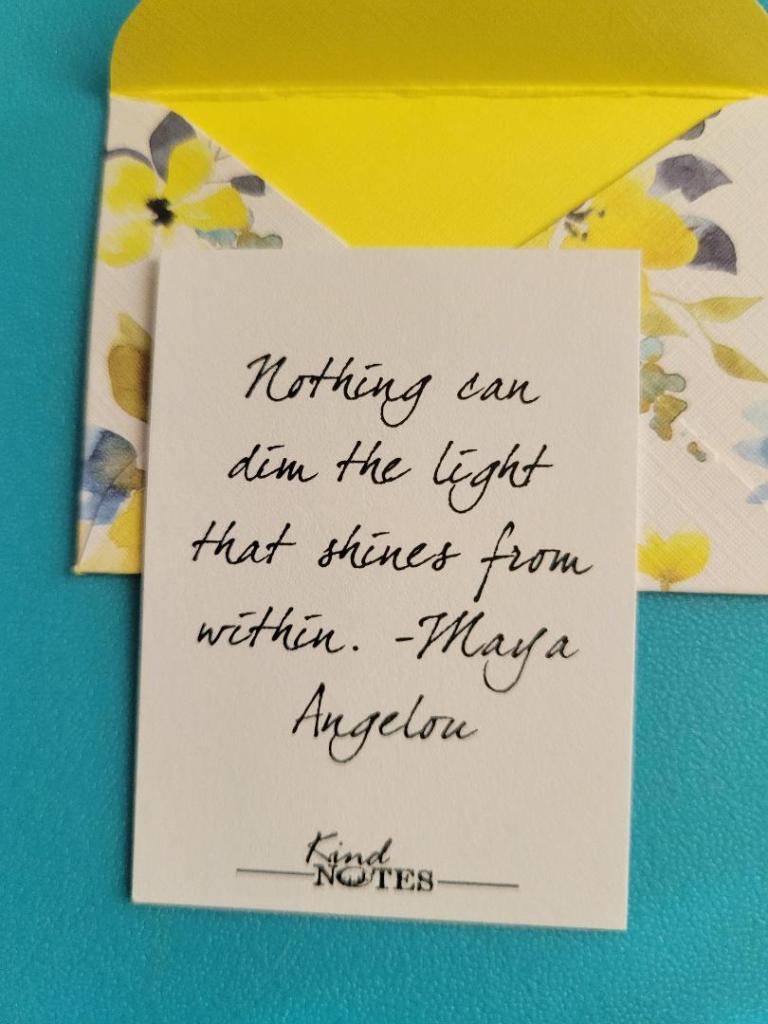 Nothing can
dim the light
that shines from
within. -Maya
Angelou
Kind
NOTES